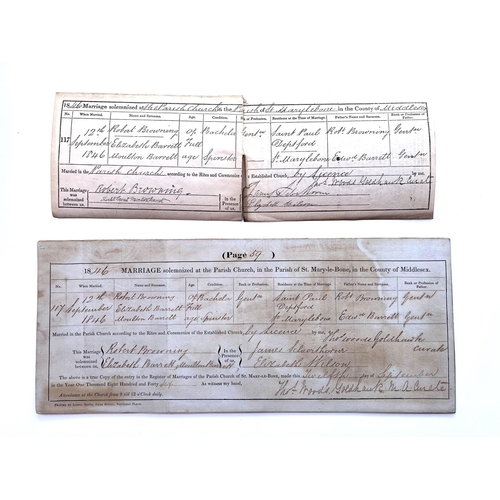 1846 Marriage solemnized at the Parish Church in the Parish of St Marylebone, in the County of Middlesex
No. When Married. Name and Surname. Age. Condition. Rank or Profession. Residence at the Time of Marriage. Father's Name and Surname. Rank or Profession of Father.
117 12th September 1846 Robert Browning of Bachelor Gentn Saint Paul Deptford Robt Browning Gentn
Elizabeth Barrett Moulton Barrett Full age Spinster St Marylebone Edwd Barrett Gentn
Married in the Parish Church according to the Rites and Ceremonies of the Established Church, by Licence by me,
Thos Woods Goldhawk Curate
This Marriage was solemnized between us, Robert Browning in the Presence of us,
(Page 59)
1846 MARRIAGE solemnized at the Parish Church, in the Parish of St. Mary-le-Bone, in the County of Middlesex.
No. When Married. Name and Surname. Age. Condition. Rank or Profession. Residence at the Time of Marriage. Father's Name and Surname. Rank or Profession of Father.
117 12th September 1846 Robert Browning of Bachelor Gentn Saint Paul Deptford Robt Browning Gentn
Elizabeth Barrett Moulton Barrett Full age Spinster St Marylebone Edwr Barrett Gentn
Married in the Parish Church according to the Rites and Ceremonies of the Established Church, by Licence by me, Thos Woods Goldhawk Curate
This Marriage was solemnized between us, Robert Browning in the Presence of us, James Silverthorne
Elizabeth Barrett Moulton Barrett Elizabeth Wilson
The above is a true Copy of the entry in the Register of Marriages of the Parish Church of St. MARY-LE-BONE, made this twelfth day of September
in the Year One Thousand Eight Hundred and Forty six As witness my hand, Thos Woods Goldhawk M A Curate
Attendance at the Church from 8 till 12 o'Clock daily.